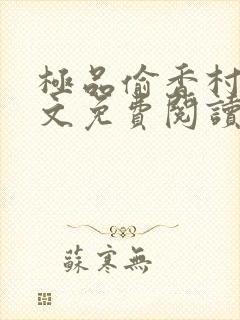 極品偷香村
文免費閱讀
蘇寒無